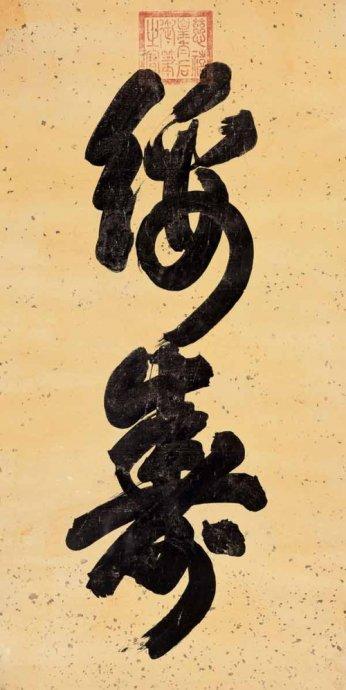 慈禧皇太后御筆之寶
綏壽